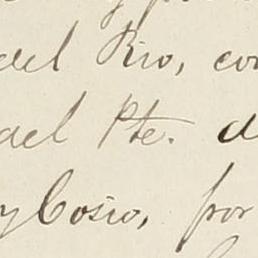 del Rio, co
del Pte. d
y Cosio, por